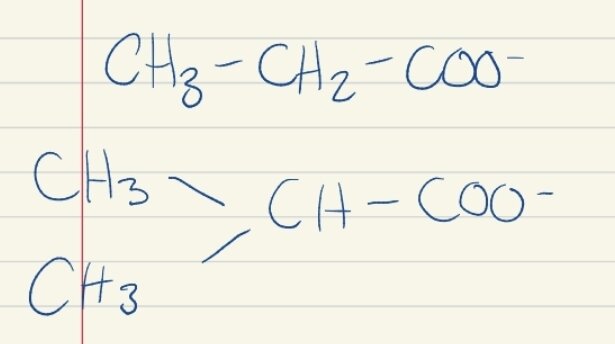 CH₃ - CH₂ - COO⁻
CH₃
CH - COO⁻
CH₃